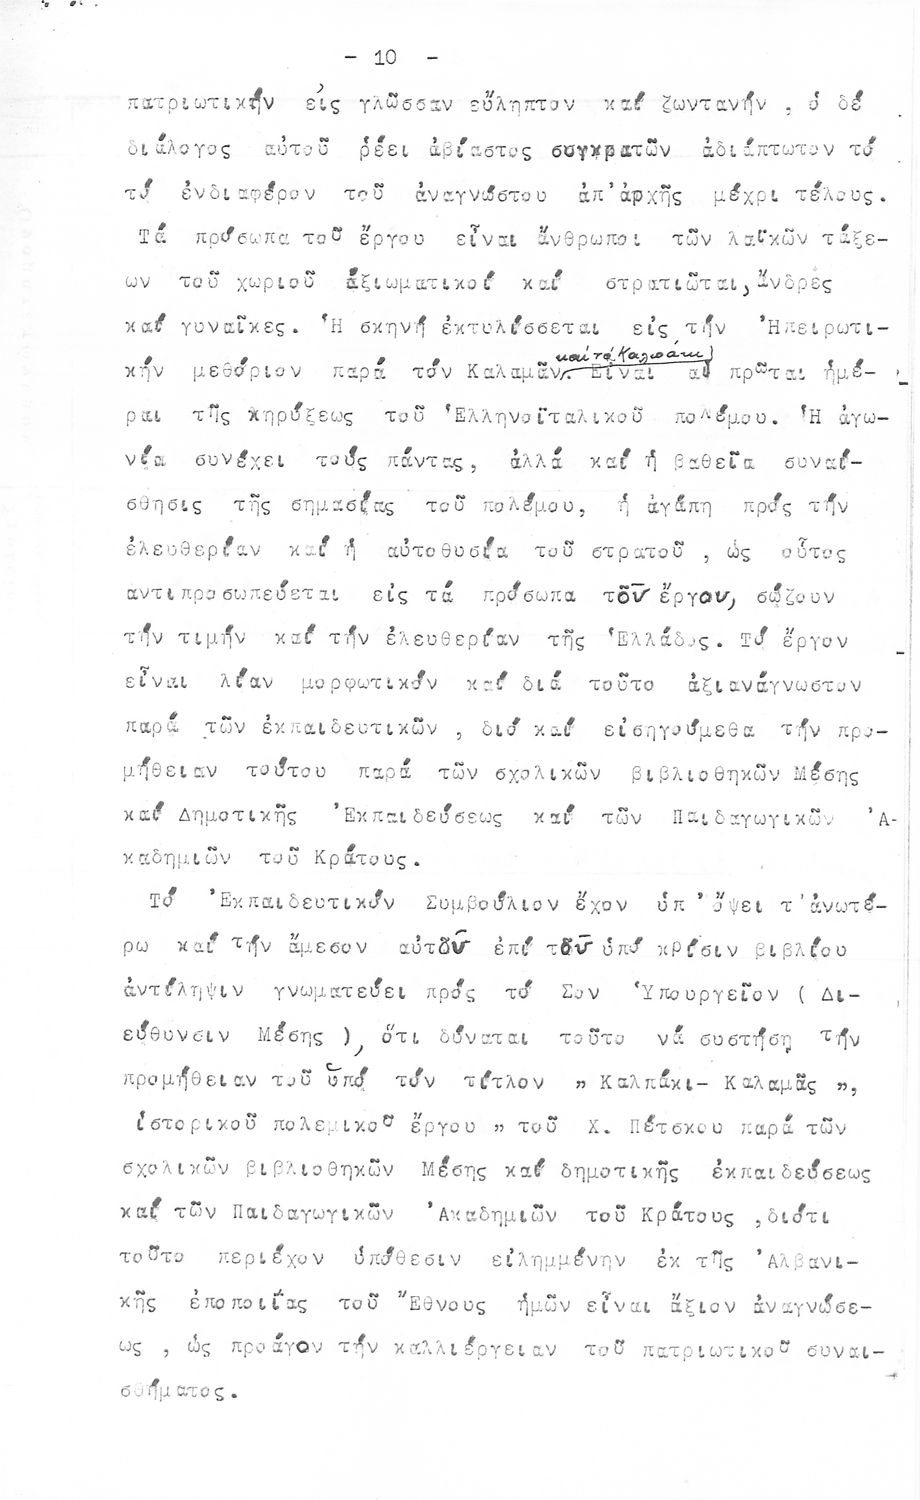 - 10 -
πατριωτικήν εἰς γλῶσσαν εὔληπτον καί ζωντανήν , ὁ δέ
διάλογος αὐτοῦ ρέει ἀβίαστος συγκρατῶν ἀδιάπτωτον τό
τό ἐνδιαφέρον τοῦ ἀναγνώστου ἀπ'ἀρχῆς μέχρι τέλους.
Τά πρόσωπα τοῦ ἔργου εἶναι ἄνθρωποι τῶν λαϊκῶν τάξε-
ων τοῦ χωριοῦ ἀξιωματικοί καί στρατιῶται, ἄνδρες
καί γυναῖκες. Ἡ σκηνή ἐκτυλίσσεται εἰς τήν Ἠπειρωτι-
καί τό Καλπάκι
κήν μεθόριον παρά τόν Καλαμᾶν. Εἶναι αἱ πρῶται ἡμέ-
ραι τῆς κηρύξεως τοῦ Ἑλληνοϊταλικοῦ πολέμου. Ἡ ἀγω-
νία συνέχει τούς πάντας, ἀλλά καί ἡ βαθεῖα συναί-
σθησις τῆς σημασίας τοῦ πολέμου, ἡ ἀγάπη πρός τήν
ἐλευθερίαν καί ἡ αὐτοθυσία τοῦ στρατοῦ , ὡς οὗτος
αντιπροσωπεύεται εἰς τά πρόσωπα τοῦ ἔργου, σώζουν
τήν τιμήν καί τήν ἐλευθερίαν τῆς Ἑλλάδος. Τό ἔργον
εἶναι λίαν μορφωτικόν καί διά τοῦτο ἀξιανάγνωστον
παρά τῶν ἐκπαιδευτικῶν , διό καί εἰσηγούμεθα τήν προ-
μήθειαν τούτου παρά τῶν σχολικῶν βιβλιοθηκῶν Μέσης
καί Δημοτικῆς Ἐκπαιδεύσεως καί τῶν Παιδαγωγικῶν Ἀ-
καδημιῶν τοῦ Κράτους.
Τό Ἐκπαιδευτικόν Συμβούλιον ἔχον ὑπ ' ὄψει τ'ἀνωτέ-
ρω καί τήν ἄμεσον αὐτοῦ ἐπί τοῦ ὑπό κρίσιν βιβλίου
ἀντίληψιν γνωματεύει πρός τό Σον Ὑπουργεῖον ( Δι-
εύθυνσιν Μέσης ), ὅτι δύναται τοῦτο νά συστήση τήν
προμήθειαν τοῦ ὑπό τόν τίτλον " Καλπάκι- Καλαμᾶς ",
ἱστορικοῦ πολεμικοῦ ἔργου " τοῦ Χ. Πέτσκου παρά τῶν
σχολικῶν βιβλιοθηκῶν Μέσης καί δημοτικῆς ἐκπαιδεύσεως
καί τῶν Παιδαγωγικῶν Ἀκαδημιῶν τοῦ Κράτους ,διότι
τοῦτο περιέχον ὑπόθεσιν εἰλημμένην ἐκ τῆς Ἀλβανι-
κῆς ἐποποιΐας τοῦ Ἔθνους ἡμῶν εἶναι ἄξιον ἀναγνώσε-
ως , ὡς προάγον τήν καλλιέργειαν τοῦ πατριωτικοῦ συναι-
σθήματος.